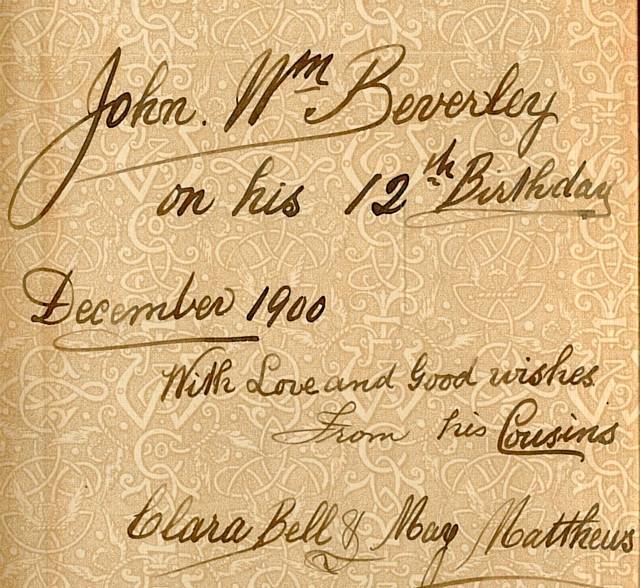 John. Wm Beverley
on his 12th Birthday
December 1900
With Love and Good wishes
From his Cousins
Clara Bell & May Matthews